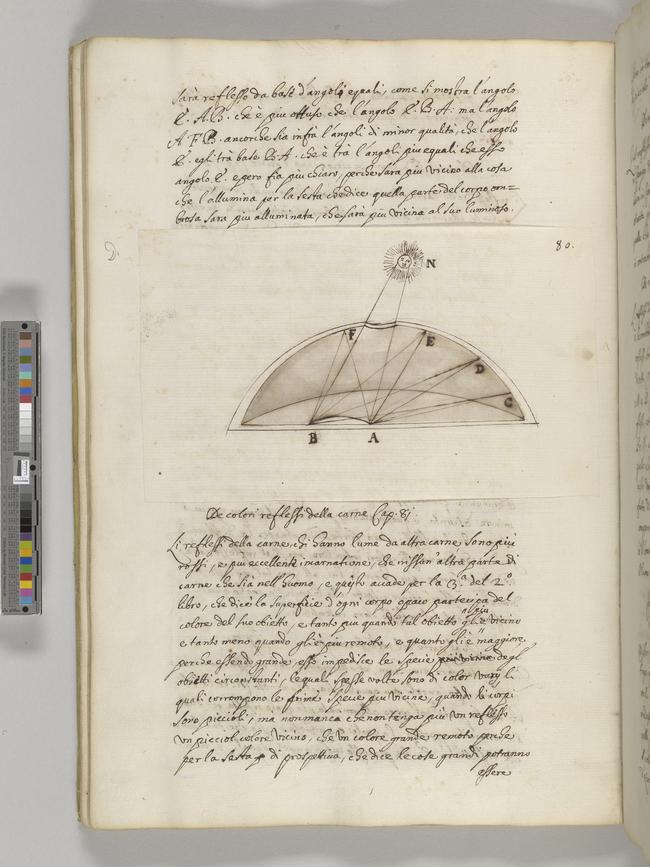 sara reflesso da base d'angoli equali, come si mostra l'angolo
E. A. B. che è piu ottuso che l'angolo E. B. A: ma l'angolo
A F B. ancorche sia infra l'angoli di minor qualità, che l'angolo
E. egli tra base B. A. che è trà l'angoli piu equali che esso
angolo E. e pero fia piu chiaro, perche sara piu vicino alla cosa
che l'allumina per la sesta che dice quella parte del corpo om=
broso sara piu alluminata, che sarà piu vicina al suo luminoso.
80.
N
F
E
D
C
B A
De colori reflessi della carne Cap. 81.
Li reflessi della carne, chi hanno lume da altra carne sono piu
rossi, e piu eccellente incarnatione, che nissun'altra parte di
carne che sia nell'huomo, e questo accade per la 3.a del 2.o
libro, che dice la superficie d'ogni corpo opaco partecipa del
colore del suo obietto, e tanto piu quando tal obietto gli è piu vicino
e tanto meno quando gli è piu remoto, e quanto gli è maggiore,
perche essendo grande esso impedisce le specie degl
obietti circonstanti, le quali spesse volte sono di color varij li
quali corrompono le prime specie piu vicine, quando li corpi
sono piccioli, ma non manca che non tenga piu un reflesso
un picciol colore vicino, che un colore grande remoto perche
per la sesta di prospettiva, che dice le cose grandi potranno
essere